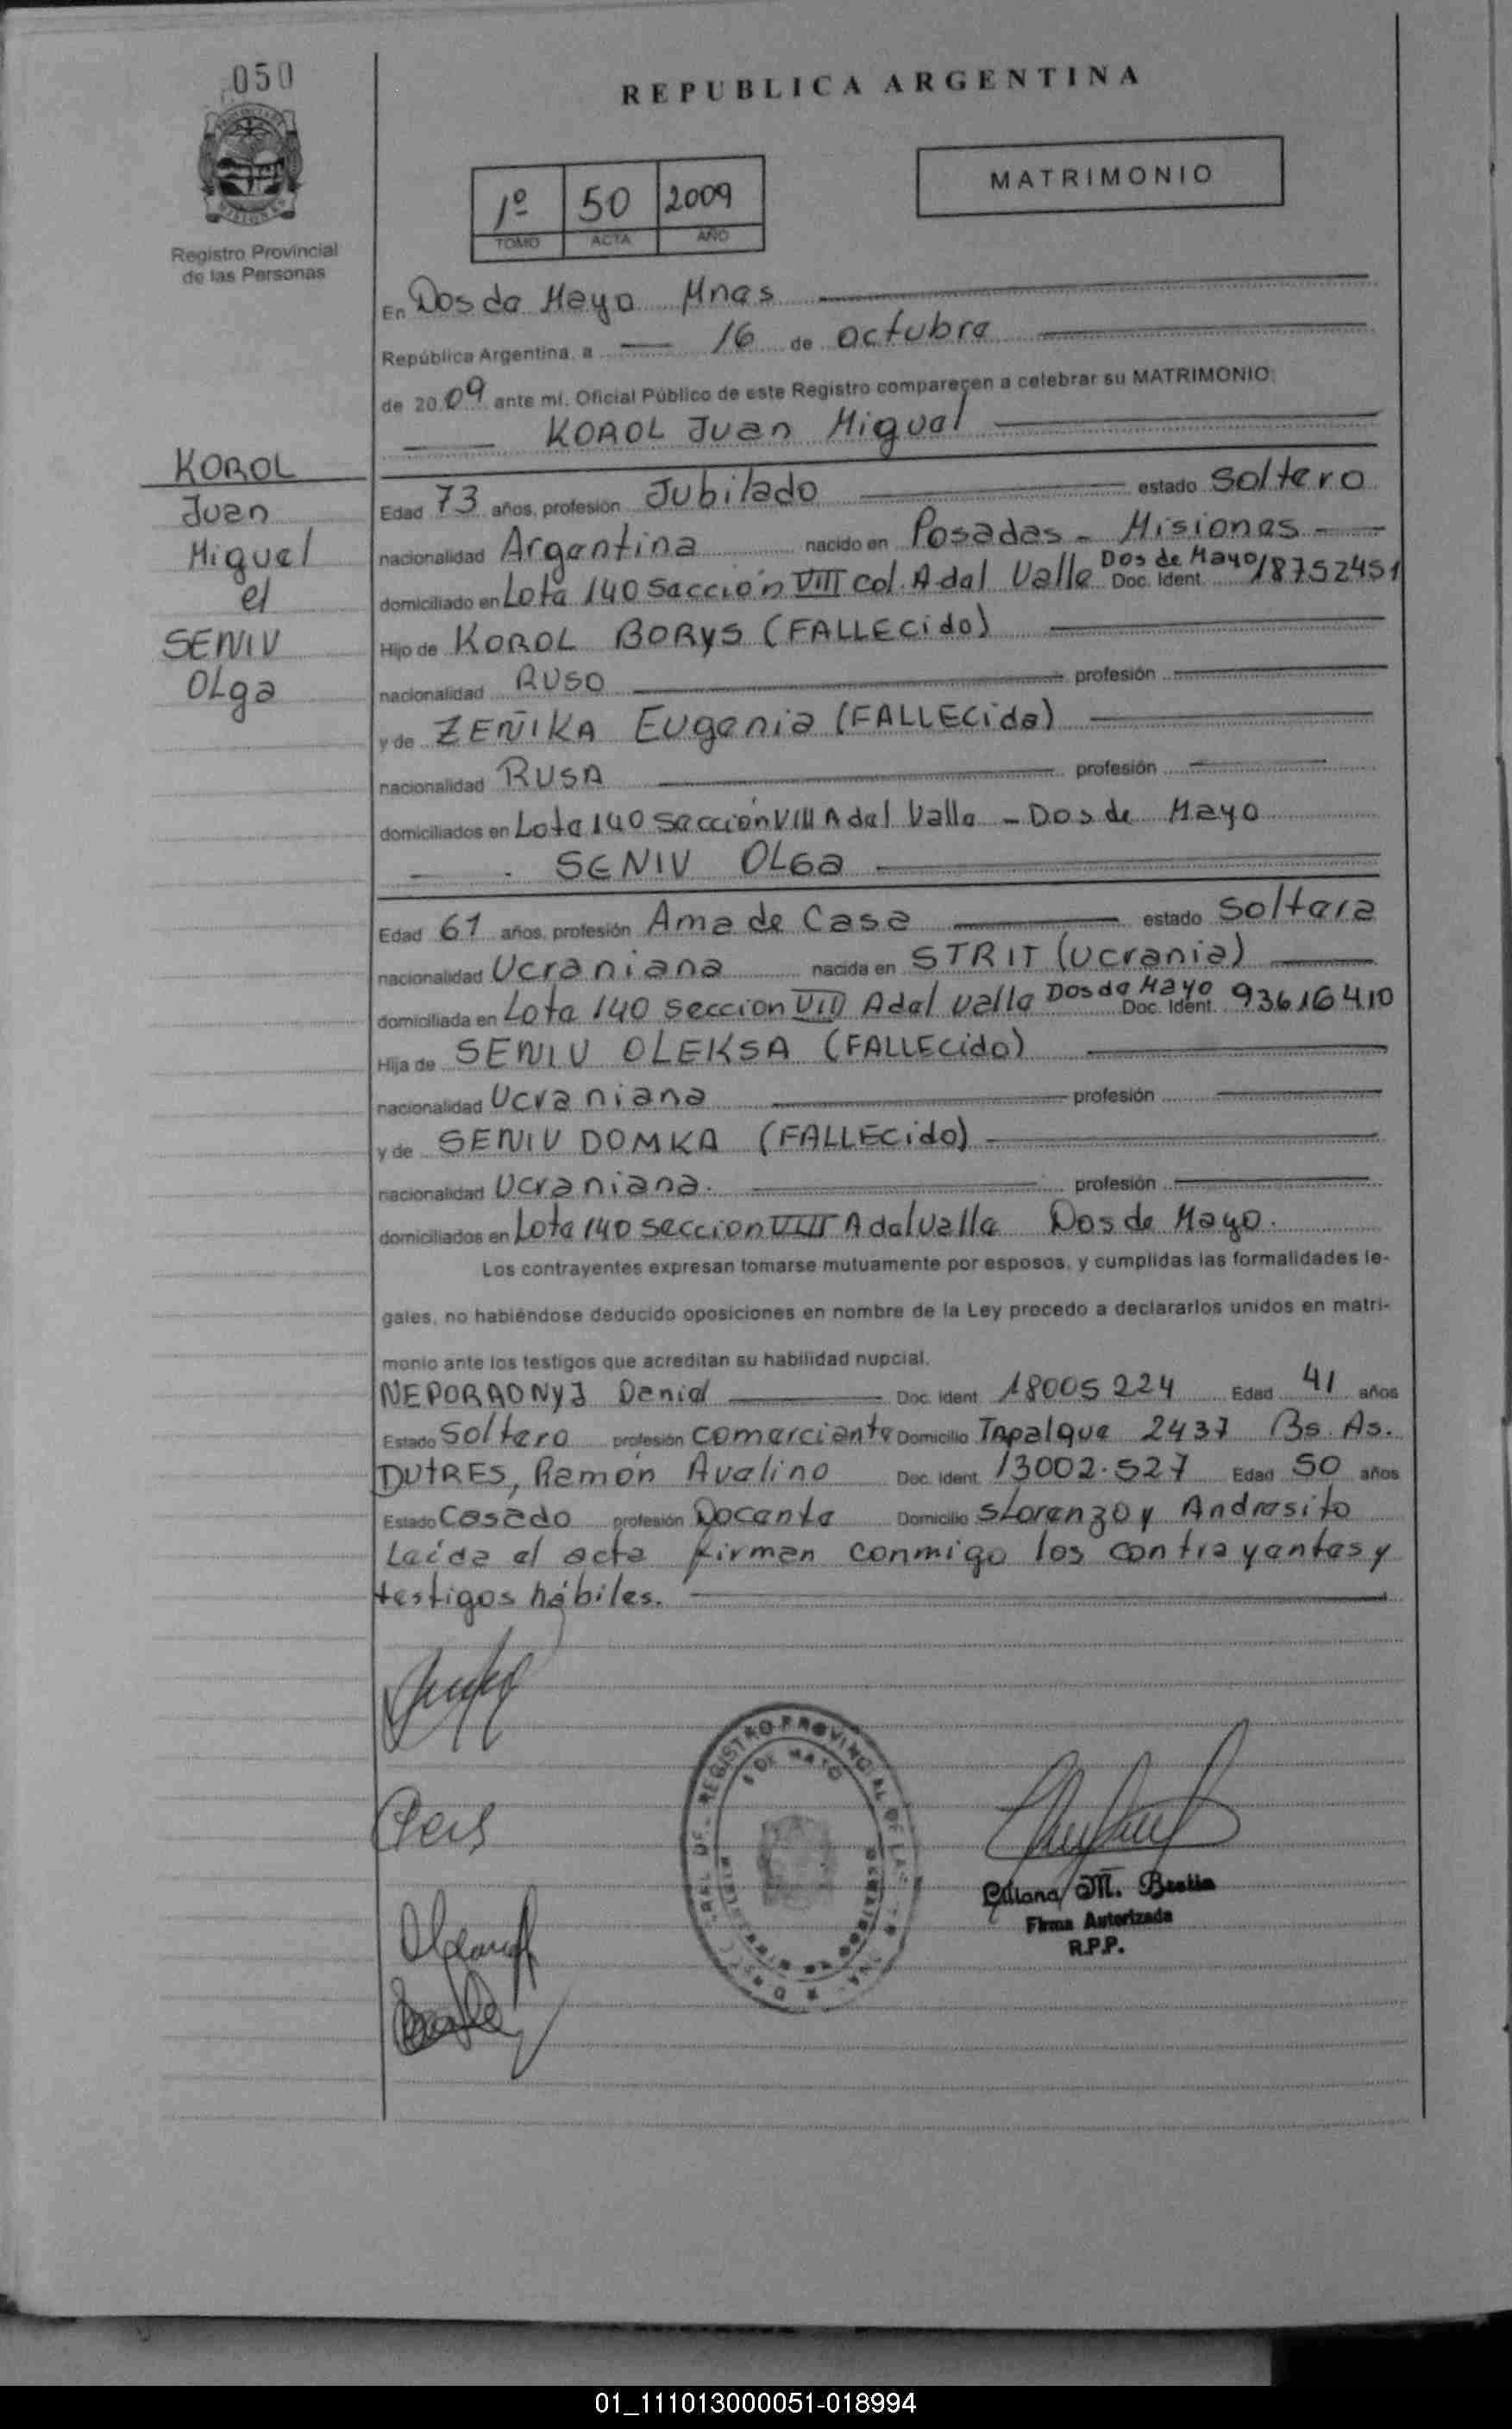 050
REPUBLICA ARGENTINA
MATRIMONIO
1º 50 2009
TOMO ACTA AÑO
Registro Provincial
de las Personas
En Dos de Mayo Mnes
República Argentina, a 16 de octubre
de 2009 ante mí, Oficial Público de este Registro comparecen a celebrar su MATRIMONIO:
KOROL Juan Miguel
KOROL
Juan
Miguel
el
SENIV
OLga
Edad 73 años, profesión Jubilado estado Soltero
nacionalidad Argentina nacido en Posadas - Misiones
domiciliado en Lote 140 Sección VIII Col. A del Valle Dos de Mayo Doc. Ident. 18752451
Hijo de KOROL BORYS (FALLECido)
nacionalidad RUSO profesión
y de ZEÑIKA Eugenia (FALLECida)
nacionalidad RUSA profesión
domiciliados en Lote 140 Sección VIII A del Valle - Dos de Mayo
SENIV OLGa
Edad 61 años, profesión Ama de Casa estado Soltera
nacionalidad Ucraniana nacida en STRIT (Ucrania)
domiciliada en Lote 140 Seccion VIII A del Valle Dos de Mayo Doc. Ident. 93616410
Hija de SENIV OLEKSA (FALLECido)
nacionalidad Ucraniana profesión
y de SENIV DOMKA (FALLECido)
nacionalidad Ucraniana. profesión
domiciliados en Lote 140 Seccion VIII A del Valle Dos de Mayo.
Los contrayentes expresan tomarse mutuamente por esposos, y cumplidas las formalidades le-
gales, no habiéndose deducido oposiciones en nombre de la Ley procedo a declararlos unidos en matri-
monio ante los testigos que acreditan su habilidad nupcial.
NEPORADNYJ Daniel Doc. Ident. 18005224 Edad 41 años
Estado Soltero profesión comerciante Domicilio Tapalque 2437 Bs. As.
DUTRES, Ramón Avelino Doc. Ident. 13002.527 Edad 50 años
Estado Casado profesión Docente Domicilio S Lorenzo y Andresito
Leída el acta firman conmigo los contrayentes y
testigos hábiles.
REGISTRO PROVINCIAL DE LAS
DE MAYO
M.
Firma Autorizada
R.P.P.
01_111013000051-018994